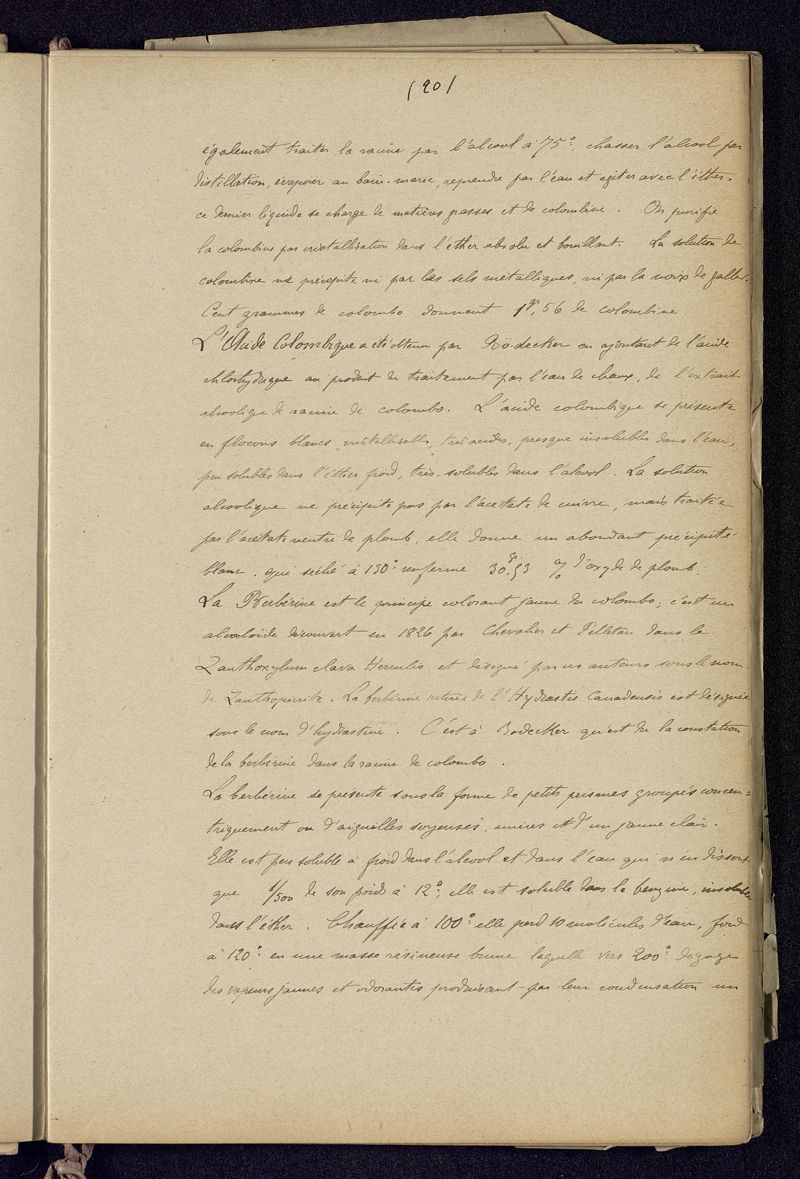 (20)
également traiter la racine par l'alcool à 75° chasser l'alcool par
distillation, évaporer au bain-marie, reprendre par l'eau et agiter avec l'éther.
ce dernier liquide se charge de matières grasses et de colombine. On purifie
la colombine par cristallisation dans l'éther absolu et bouillant. La solution de
colombine ne précipite ni par les sels métalliques, ni par la noix de galles.
Cent grammes de colombo donnent 1gr,56 de colombine
L'Acide Colombique a été obtenu par Bödecker en ajoutant de l'acide
chlorhydrique au produit du traitement par l'eau de chaux, de l'extrait
alcoolique de racine de colombo. L'acide colombique se présente
en flocons blancs, cristallisables, très acides, presque insolubles dans l'eau,
peu solubles dans l'éther froid, très-solubles dans l'alcool. La solution
alcoolique ne précipite pas par l'acétate de cuivre, mais traitée
par l'acétate neutre de plomb, elle donne un abondant précipité
blanc. qui séché à 130° renferme 30gr,53 % d'oxyde de plomb
La Berbérine est le principe colorant jaune du colombo; c'est un
alcaloïde découvert en 1826 par Chevalier et Pelletan dans le
Zanthoxylum clava Herculis et désigné par ces auteurs sous le nom
de Zanthopicrite. La berbérine retirée de l'Hydrastis Canadensis est désignée
sous le nom d'hydrastine. C'est à Bodecker qu'est due la constatation
de la berbérine dans la racine de colombo.
La berbérine se présente sous la forme de petits prismes groupés concen=
triquement ou d'aiguilles soyeuses, et d'un jaune clair.
Elle est peu soluble à froid dans l'alcool et dans l'eau qui n'en dissout
que 1/500 de son poids à 12°; elle est soluble dans la benzine, insoluble
dans l'éther. Chauffée à 100° elle perd 10 molécules d'eau, fond
à 120° en une masse résineuse brune laquelle vers 200° dégage
des vapeurs jaunes et odorantes produisant par leur condensation un